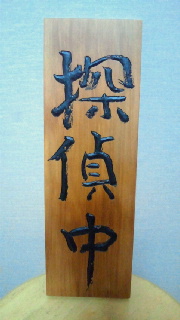 探偵中